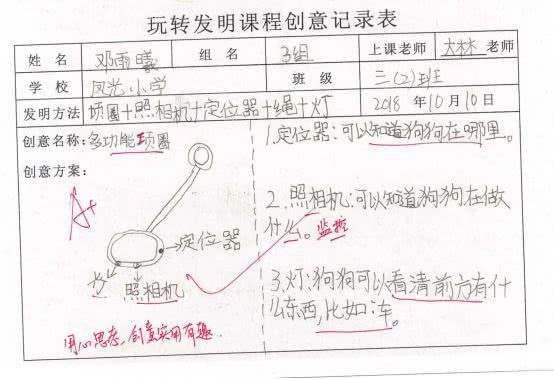 玩转发明课程创意记录表
姓名 邓雨曦 组名 3组 上课老师 大林 老师
学校 凤光小学 班级 三(2)班
发明方法 项圈+照相机+定位器+绳+灯 2018年10月10日
创意名称:多功能项圈
创意方案:
A+
定位器
灯
照相机
用心思考,创意实用有趣.
1.定位器:可以知道狗狗在哪里。
2.照相机:可以知道狗狗在做
什么。监控
3.灯:狗狗可以看清前方有什
么东西,比如:车。